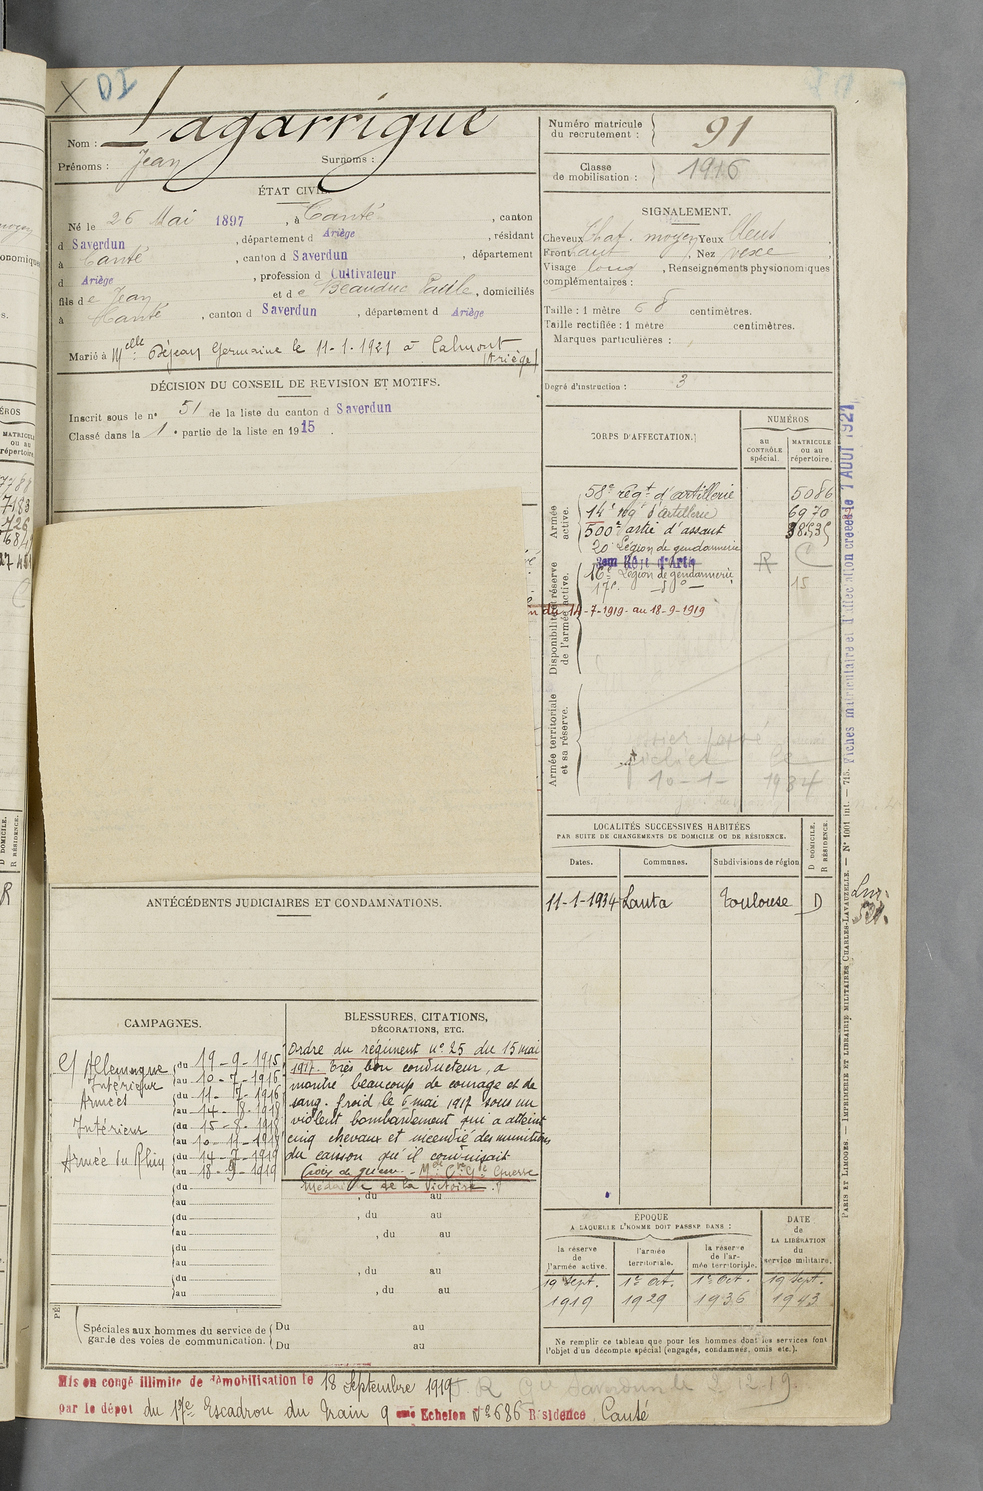 X
Nom : Lagarrigue
Prénoms : Jean Surnoms :
ÉTAT CIVIL.
Né le 26 Mai 1897, à Canté, canton
d Saverdun, département d Ariège, résidant
à Canté, canton d Saverdun, département
d Ariège, profession d Cultivateur
fils de Jean et de Beauduc Paule, domiciliés
à Canté, canton d Saverdun, département d Ariège
Marié à Melle : Déjean Germaine le 11-1-1921 à Calmont
(Ariège)
DÉCISION DU CONSEIL DE REVISION ET MOTIFS.
Inscrit sous le n° 51 de la liste du canton d Saverdun
Classé dans la 1e partie de la liste en 1915.
ANTÉCÉDENTS JUDICIAIRES ET CONDAMNATIONS.
CAMPAGNES.
C/ Allemagne
du 19-9-1915
Intérieur
au 10-7-1916
Armées
du 11-7-1916
au 14-8-1918
Intérieur
du 15-8-1918
au 10-11-1918
Armée du Rhin
du 14-7-1919
au 18-9-1919
du
au
du
au
du
au
du
au
BLESSURES, CITATIONS,
DÉCORATIONS, ETC.
Ordre du régiment n° 25 du 15 mai
1917. Très bon conducteur, a
montré beaucoup de courage et de
sang-froid le 6 mai 1917 sous un
violent bombardement qui a atteint
cinq chevaux et incendié des munitions
du caisson qu'il conduisait
Croix de guerre - Mlle Cve Gde Guerre
Médaille de la Victoire
, du au
, du au
, du au
, du au
, du au
Spéciales aux hommes du service de
garde des voies de communication.
Du au
Du au
Numéro matricule
du recrutement : 91
Classe
de mobilisation : 1916
SIGNALEMENT.
Cheveux Chat. moyen Yeux bleus,
Front haut, Nez vexe,
Visage long, Renseignements physionomiques
complémentaires :
Taille : 1 mètre 68 centimètres.
Taille rectifiée : 1 mètre centimètres.
Marques particulières :
Degré d'instruction : 3
CORPS D'AFFECTATION.
NUMÉROS
au
CONTRÔLE
spécial.
MATRICULE
ou au
répertoire.
Armée
active.
58e régt d'artillerie 5086
14e régt d'artillerie 6970
500e artie d'assaut 38535
20e Légion de gendarmerie
R C
Disponibilité et réserve
de l'armée active.
16e Légion de gendarmerie
17e -do- 15
du 14-7-1919 au 18-9-1919
Armée territoriale
et sa réserve.
10-1-1934
LOCALITÉS SUCCESSIVES HABITÉES
PAR SUITE DE CHANGEMENTS DE DOMICILE OU DE RÉSIDENCE.
Dates. Communes. Subdivisions de région
D DOMICILE.
R RÉSIDENCE.
11-1-1934 Lanta Toulouse D
ÉPOQUE
A LAQUELLE L'HOMME DOIT PASSER DANS :
la réserve
de
l'armée active.
l'armée
territoriale.
la réserve
de l'ar-
mée territoriale.
DATE
de
LA LIBÉRATION
du
service militaire.
19 Sept. 1er Oct. 1er Oct. 19 Sept.
1919 1929 1936 1943
Ne remplir ce tableau que pour les hommes dont les services font
l'objet d'un décompte spécial (engagés, condamnés, omis etc.).
Fiches matriculaire et d'affectation créées le 7 AOUT 1921
PARIS ET LIMOGES. — IMPRIMERIE ET LIBRAIRIE MILITAIRES CHARLES-LAVAUZELLE. — N° 1001 int. — 715.
Mis en congé illimité de démobilisation le 18 Septembre 1919
par le dépot du 17e Escadron du Train 9 eme Echelon N° 686 Résidence Canté